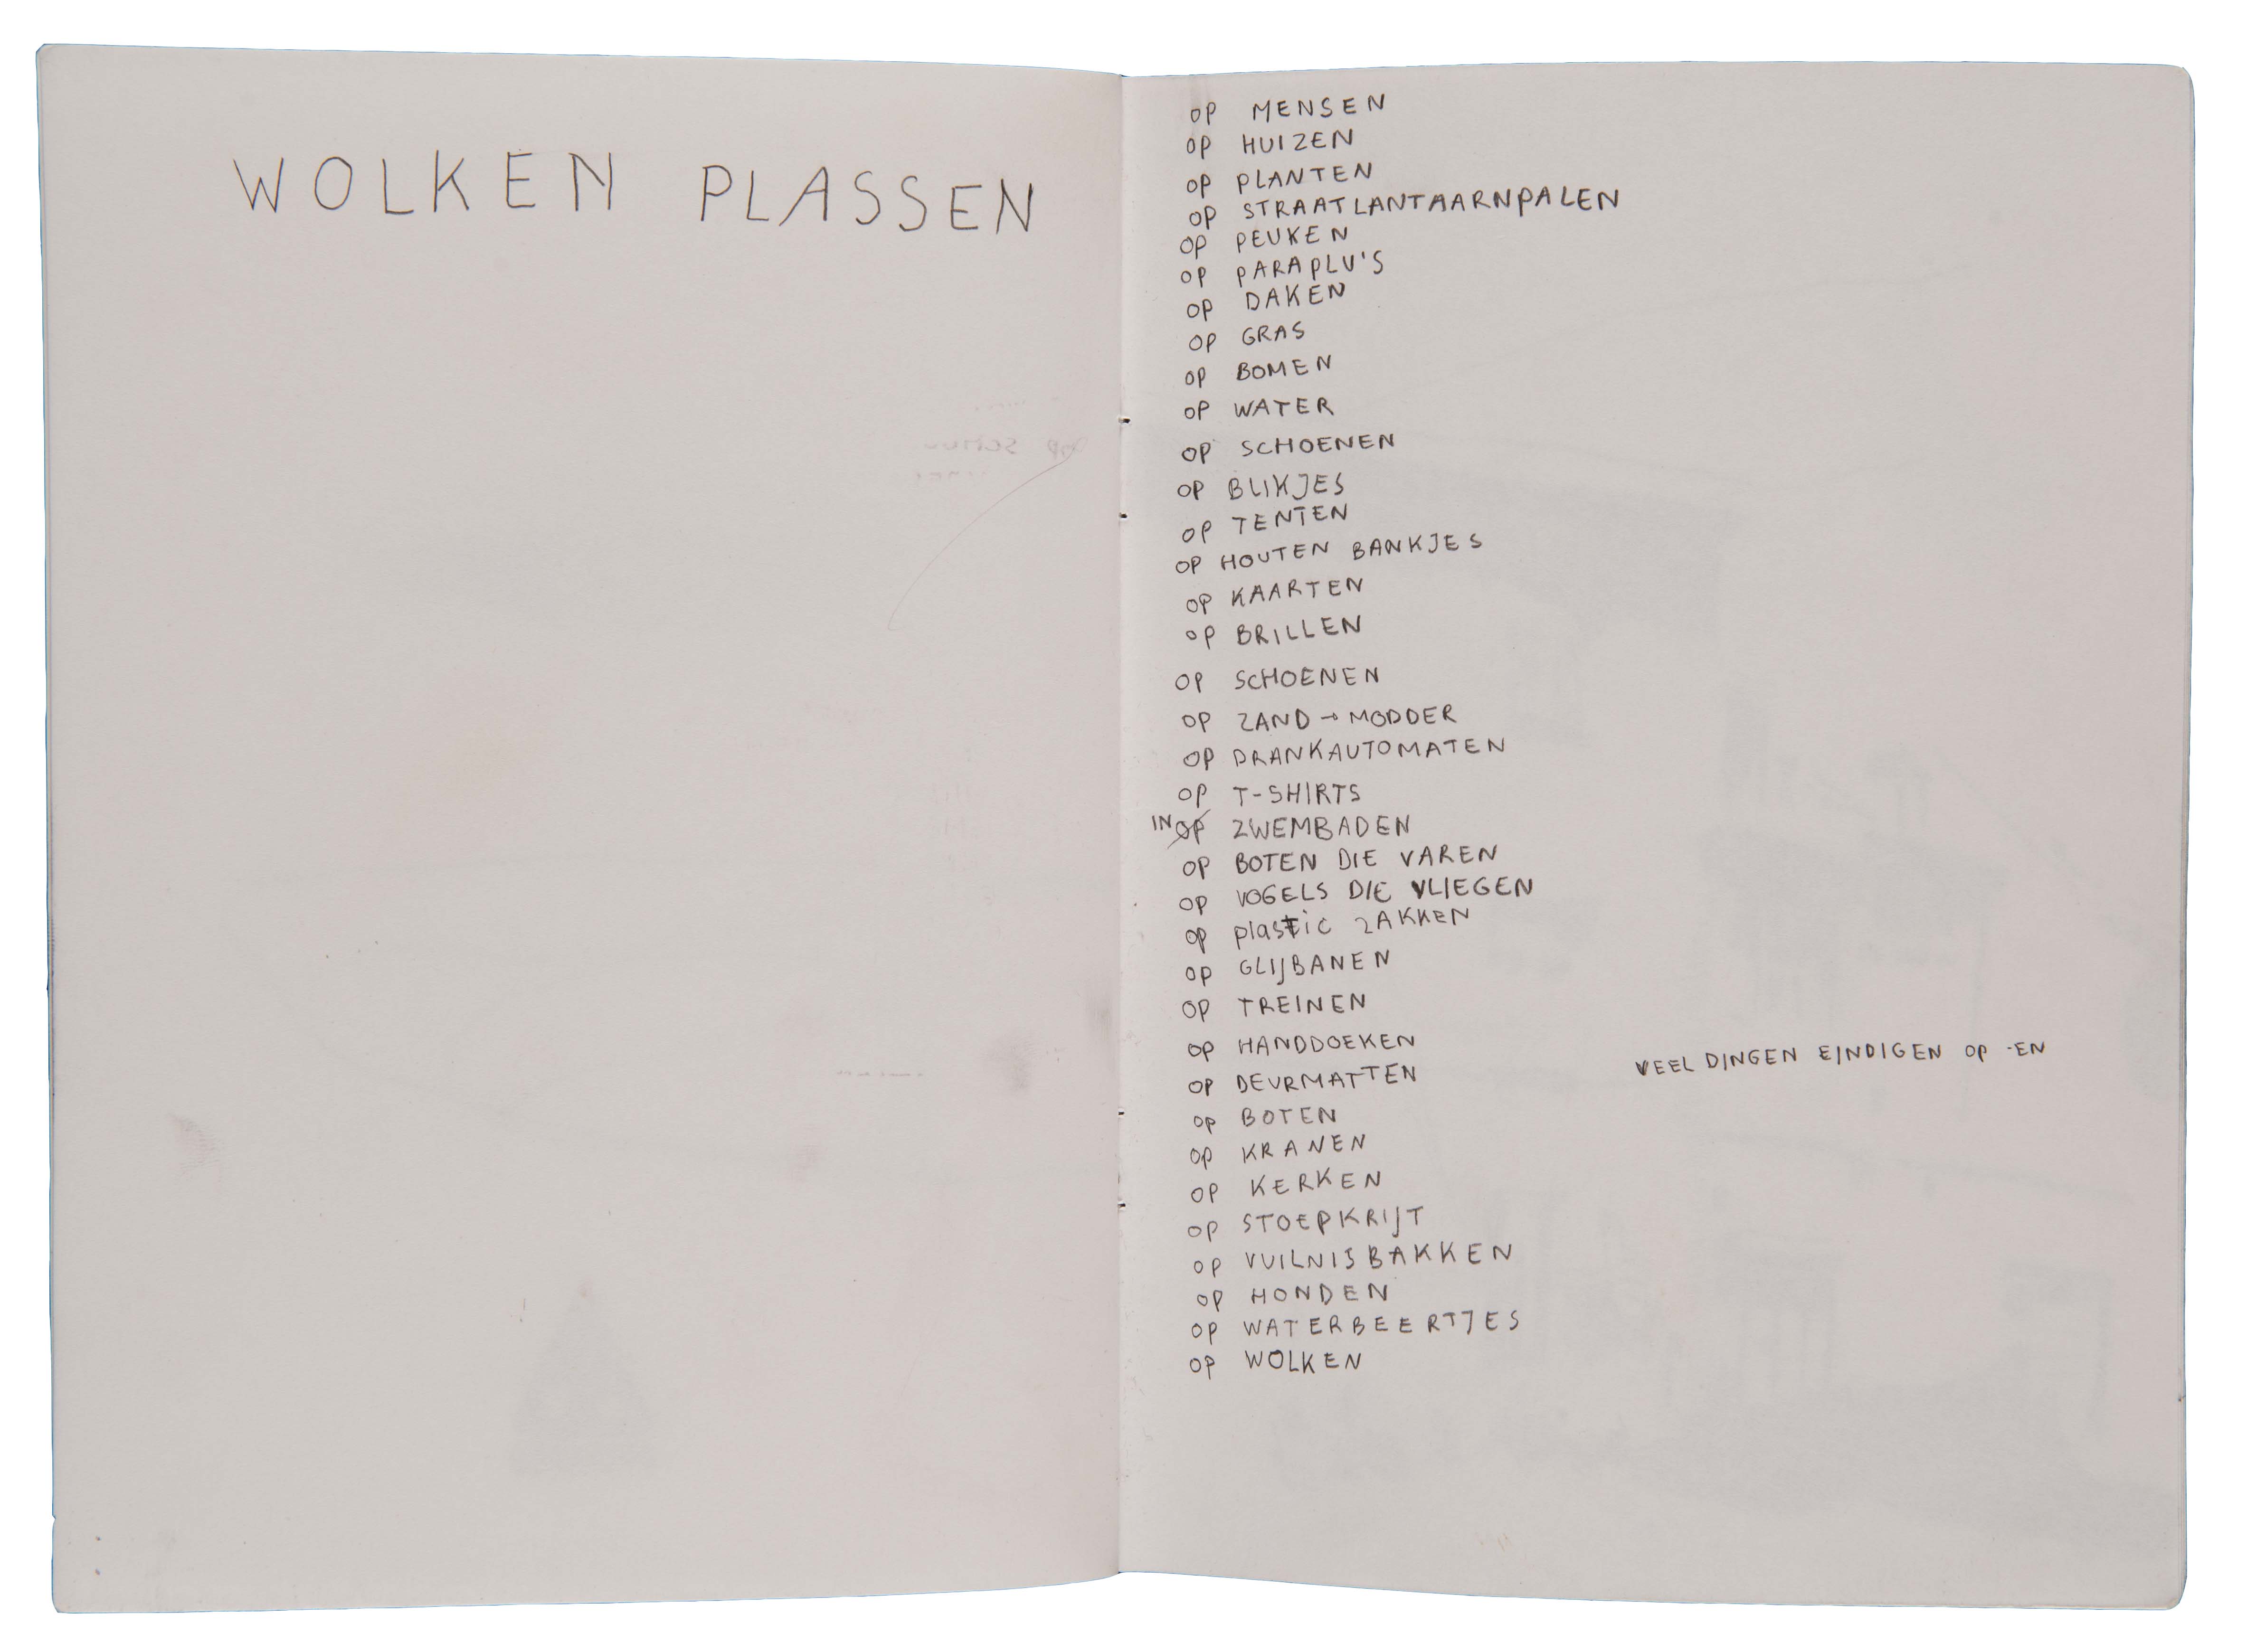 WOLKEN PLASSEN
OP MENSEN
OP HUIZEN
OP PLANTEN
OP STRAATLANTAARNPALEN
OP PEUKEN
OP PARAPLU'S
OP DAKEN
OP GRAS
OP BOMEN
OP WATER
OP SCHOENEN
OP BLIKJES
OP TENTEN
OP HOUTEN BANKJES
OP KAARTEN
OP BRILLEN
OP SCHOENEN
OP ZAND → MODDER
OP DRANKAUTOMATEN
OP T-SHIRTS
IN OP ZWEMBADEN
OP BOTEN DIE VAREN
OP VOGELS DIE VLIEGEN
OP plastic ZAKKEN
OP GLIJBANEN
OP TREINEN
OP HANDDOEKEN
OP DEURMATTEN
OP BOTEN
OP KRANEN
OP KERKEN
OP STOEPKRIJT
OP VUILNISBAKKEN
OP HONDEN
OP WATERBEERTJES
OP WOLKEN
VEEL DINGEN EINDIGEN OP -EN